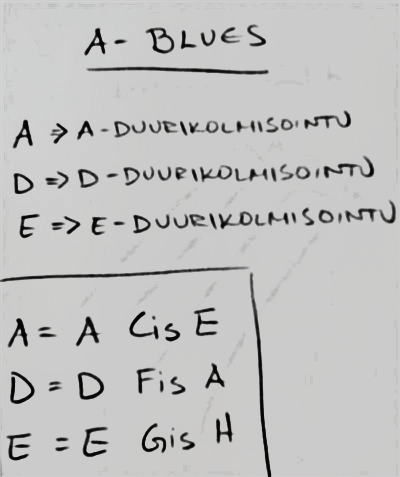 A- BLUES
A => A-DUURIKOLMISOINTU
D => D-DUURIKOLMISOINTU
E => E-DUURIKOLMISOINTU
A = A Cis E
D = D Fis A
E = E Gis H